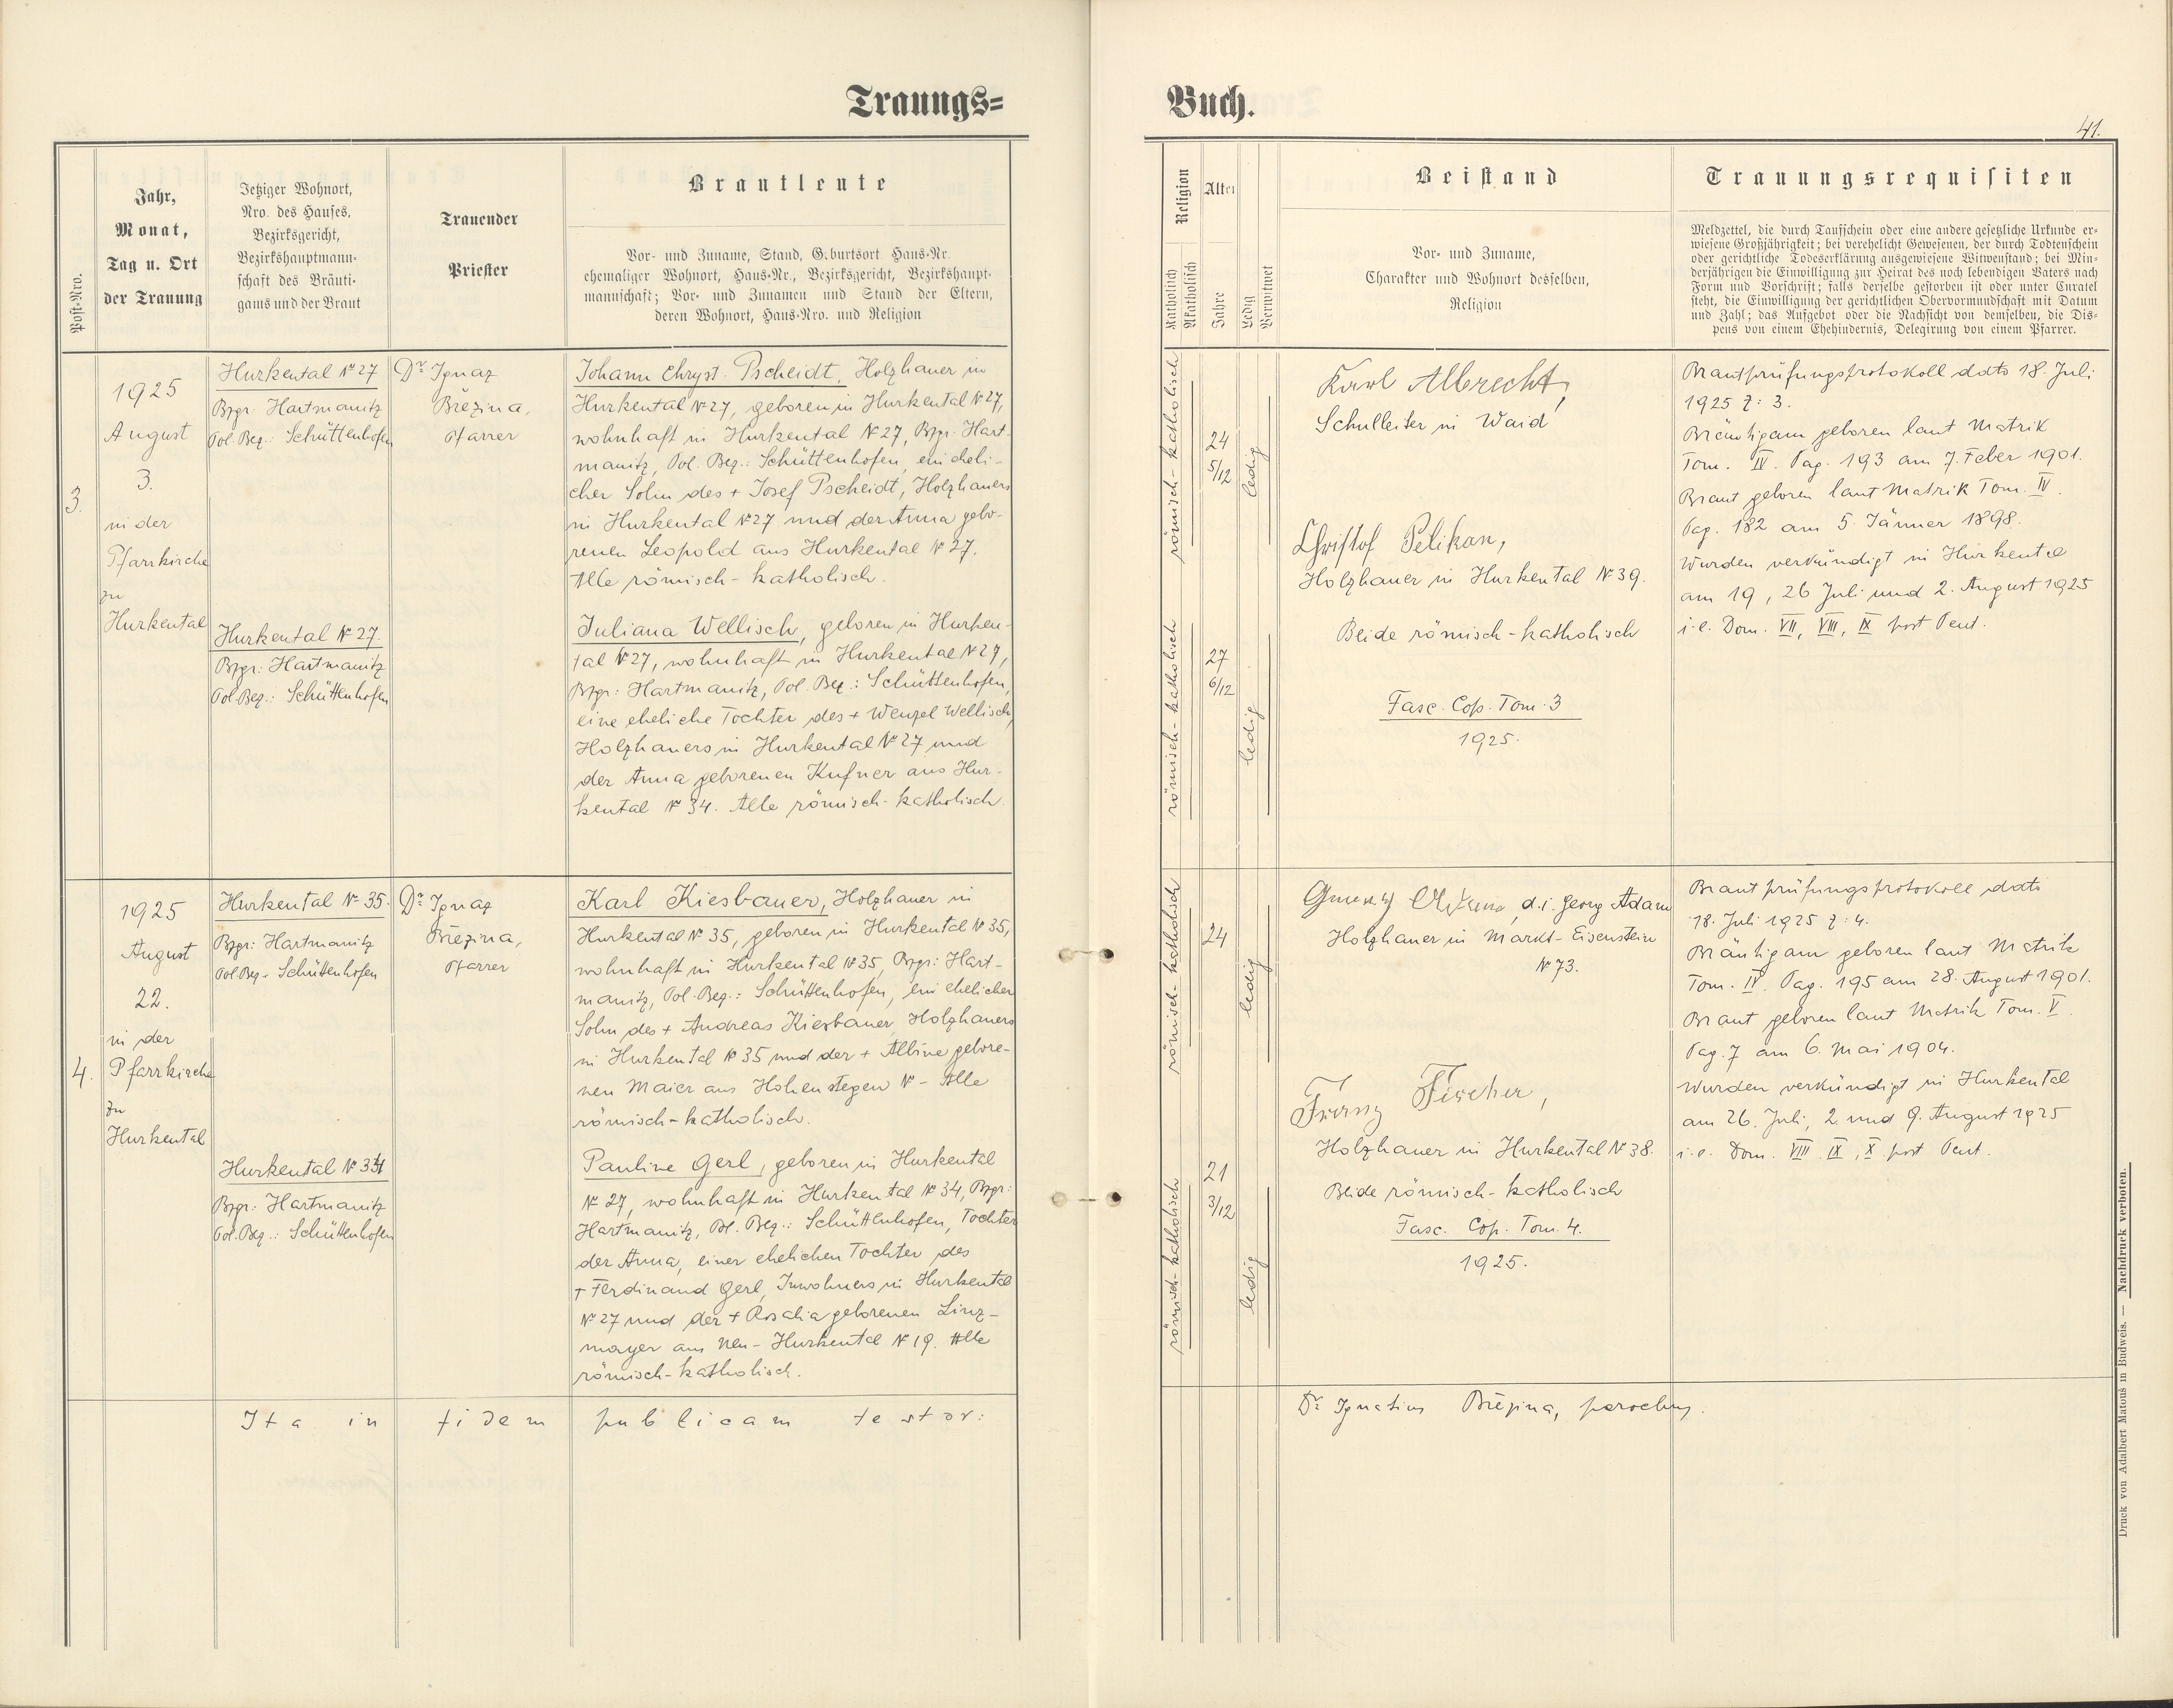 Trauungs=
Buch.
41.
Post-Nro.
Jahr,
Monat,
Tag u. Ort
der Trauung
Jetziger Wohnort,
Nro. des Hauses,
Bezirksgericht,
Bezirkshauptmann-
schaft des Bräuti-
gams und der Braut
Trauender
Priester
Brautleute
Vor- und Zuname, Stand, G.burtsort Haus-Nr.
ehemaliger Wohnort, Haus-Nr., Bezirksgericht, Bezirkshaupt-
mannschaft; Vor- und Zunamen und Stand der Eltern,
deren Wohnort, Haus-Nro. und Religion
Religion
Katholisch
Akatholisch
Alter
Jahre
Ledig
Verwitwet
Beistand
Vor- und Zuname,
Charakter und Wohnort desselben,
Religion
Trauungsrequisiten
Meldzettel, die durch Taufschein oder eine andere gesetzliche Urkunde er-
wiesene Großjährigkeit; bei verehelicht Gewesenen, der durch Todtenschein
oder gerichtliche Todeserklärung ausgewiesene Witwenstand; bei Min-
derjährigen die Einwilligung zur Heirat des noch lebendigen Vaters nach
Form und Vorschrift; falls derselbe gestorben ist oder unter Curatel
steht, die Einwilligung der gerichtlichen Obervormundschaft mit Datum
und Zahl; das Aufgebot oder die Nachsicht von demselben, die Dis-
pens von einem Ehehindernis, Delegirung von einem Pfarrer.
3.
1925
August
3.
in der
Pfarrkirche
zu
Hurkental
Hurkental № 27
Bzgr: Hartmanitz
Pol. Bez.: Schüttenhofen
Hurkental № 27.
Bzgr: Hartmanitz
Pol. Bez.: Schüttenhofen
Dr Ignaz
Březina,
Pfarrer
Johann Chryst. Pscheidt, Holzhauer in
Hurkental № 27, geboren in Hurkental № 27,
wohnhaft in Hurkental № 27, Bzgr: Hart-
manitz, Pol. Bez.: Schüttenhofen, ein eheli-
cher Sohn des + Josef Pscheidt, Holzhauers
in Hurkental № 27 und der Anna gebo-
renen Leopold aus Hurkental № 27.
Alle römisch-katholisch.
Juliana Wellisch, geboren in Hurken-
tal № 27, wohnhaft in Hurkental № 27,
Bzgr: Hartmanitz, Pol. Bez.: Schüttenhofen,
eine eheliche Tochter des + Wenzel Wellisch,
Holzhauers in Hurkental № 27 und
der Anna geborenen Kufner aus Hur-
kental № 34. Alle römisch-katholisch.
römisch-katholisch
24
5/12
ledig
römisch-katholisch
27
6/12
ledig
Karl Albrecht,
Schulleiter in Waid
Christof Pelikan,
Holzhauer in Hurkental № 39.
Beide römisch-katholisch
Fasc. Cop. Tom. 3
1925.
Brautprüfungsprotokoll ddto 18. Juli
1925 Z: 3.
Bräutigam geboren laut Matrik
Tom. IV. Pag. 193 am 7. Feber 1901.
Braut geboren laut Matrik Tom. IV.
Pag. 182 am 5. Jänner 1898.
Wurden verkündigt in Hurkental
am 19, 26 Juli und 2. August 1925
i.e. Dom. VII, VIII, IX post Pent.
4.
1925
August
22.
in der
Pfarrkirche
zu
Hurkental
Hurkental № 35.
Bzgr: Hartmanitz
Pol. Bez. Schüttenhofen
Hurkental № 34
Bzgr: Hartmanitz
Pol. Bez.: Schüttenhofen
Dr Ignaz
Březina,
Pfarrer
Karl Kiesbauer, Holzhauer in
Hurkental № 35, geboren in Hurkental № 35,
wohnhaft in Hurkental № 35, Bzgr: Hart-
manitz, Pol. Bez.: Schüttenhofen, ein ehelicher
Sohn des + Andreas Kiesbauer, Holzhauers
in Hurkental № 35 und der + Albine gebore-
nen Maier aus Hohenstegen № - Alle
römisch-katholisch.
Pauline Gerl, geboren in Hurkental
№ 27, wohnhaft in Hurkental № 34, Bzgr:
Hartmanitz, Pol. Bez.: Schüttenhofen, Tochter
der Anna, einer ehelichen Tochter des
+ Ferdinand Gerl, Inwohners in Hurkental
№ 27 und der + Rosalia geborenen Linz-
mayer aus Neu-Hurkental № 19. Alle
römisch-katholisch.
römisch-katholisch
24
ledig
römisch-katholisch
21
3/12
ledig
d.i. Georg Adam
Holzhauer in Markt-Eisenstein
№ 73.
Franz Fischer,
Holzhauer in Hurkental № 38.
Beide römisch-katholisch
Fasc. Cop. Tom. 4.
1925.
Brautprüfungsprotokoll ddto
18. Juli 1925 Z: 4.
Bräutigam geboren laut Matrik
Tom. IV. Pag. 195 am 28. August 1901.
Braut geboren laut Matrik Tom. V.
Pag. 7 am 6. Mai 1904.
Wurden verkündigt in Hurkental
am 26. Juli, 2. und 9. August 1925
i.e. Dom. VIII, IX, X post Pent.
Ita in fidem publicam testor:
Dr Ignatius Březina, parochus.
Druck von Adalbert Matouš in Budweis. — Nachdruck verboten.